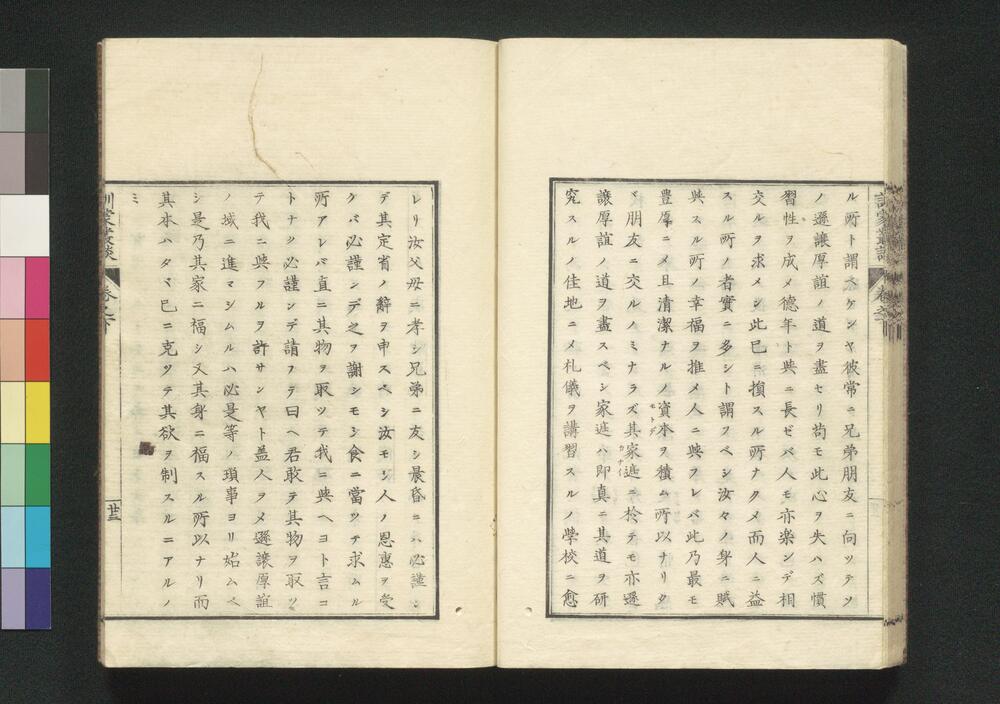 ル所ト謂ハケンヤ彼常ニ兄弟朋友ニ向ツテソ
ノ遜譲厚誼ノ道ヲ盡セリ苟モ此心ヲ失ハズ慣
習性ヲ成メ德年ト與ニ長ゼバ人モ亦楽ンデ相
交ルヲ求メン此已ニ損スル所ナクメ而人ニ益
スル所ノ者實ニ多シト謂フベシ汝々ノ身ニ賦
與スル所ノ幸福ヲ推メ人ニ與フレバ此乃最モ
豊厚ニメ且清潔ナルノ資本ヲ積ム所以ナリタ
モトデ
ヾ朋友ニ交ルノミナラズ其家遮ニ於テモ亦遜
カナイ
譲厚誼ノ道ヲ盡スベシ家遮ハ即真ニ其道ヲ研
究スルノ佳地ニメ礼儀ヲ講習スルノ學校ニ愈
レリ汝父母ニ孝シ兄弟ニ友シ晨昏ニハ必謹ン
デ其定省ノ辭ヲ申スベシ汝モシ人ノ恩惠ヲ受
ケバ必謹ンデ之ヲ謝シモシ食ニ當ツテ求ムル
所アレバ直ニ其物ヲ取ツテ我ニ與ヘヨト言コ
トナク必謹ンデ請フテ曰ヘ君敢テ其物ヲ取ツ
テ我ニ與フルヲ許サンヤト盖人ヲメ遜譲厚誼
ノ域ニ進マシムルハ必是等ノ瑣事ヨリ始ムベ
シ是乃其家ニ福シ又其身ニ福スル所以ナリ而
其本ハタヾ已ニ克ツテ其欲ヲ制スルニアルノ
ミ
訓蒙叢談
卷之下
廿三